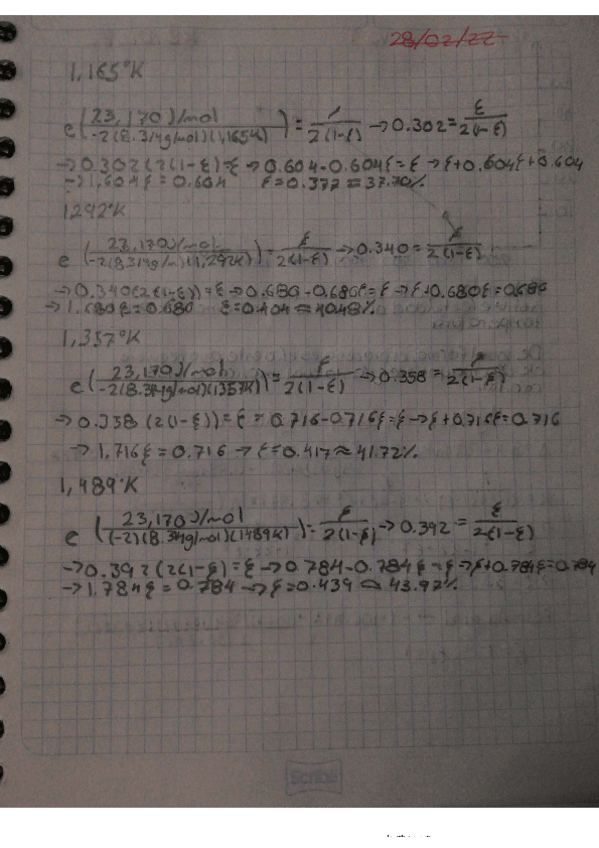 28/02/22
1,165°K
e(23,170 J/mol / -2(8.314g/mol)(1,165K)) = ξ/2(1-ξ) → 0.302 = ξ/2(1-ξ)
→ 0.302(2(1-ξ) = ξ → 0.604 - 0.604ξ = ξ → ξ + 0.604ξ + 0.604
→ 1.604ξ = 0.604 ξ = 0.377 ≈ 37.70%
1292°K
e(23,170 J/mol / -2(8.314g/m)(1,292K)) = ξ/2(1-ξ) → 0.340 = ξ/2(1-ξ)
→ 0.340(2(1-ξ)) = ξ → 0.680 - 0.680ξ = ξ → ξ + 0.680ξ = 0.680
→ 1.680ξ = 0.680 ξ = 0.404 ≈ 40.48%
1,357°K
e(23,170 J/mol / -2(8.314g/mol)(1357K)) = ξ/2(1-ξ) → 0.358 = ξ/2(1-ξ)
→ 0.358 (2(1-ξ)) = ξ = 0.716 - 0.716ξ = ξ → ξ + 0.716ξ = 0.716
→ 1,716ξ = 0.716 → ξ = 0.417 ≈ 41.72%
1,489°K
e(23,170 J/mol / (-2)(8.314g/mol)(1489K)) = ξ/2(1-ξ) → 0.392 = ξ/2(1-ξ)
→ 0.392(2(1-ξ) = ξ → 0.784 - 0.784ξ = ξ → ξ + 0.784ξ = 0.784
→ 1.784ξ = 0.784 → ξ = 0.439 ≈ 43.92%
Scribe